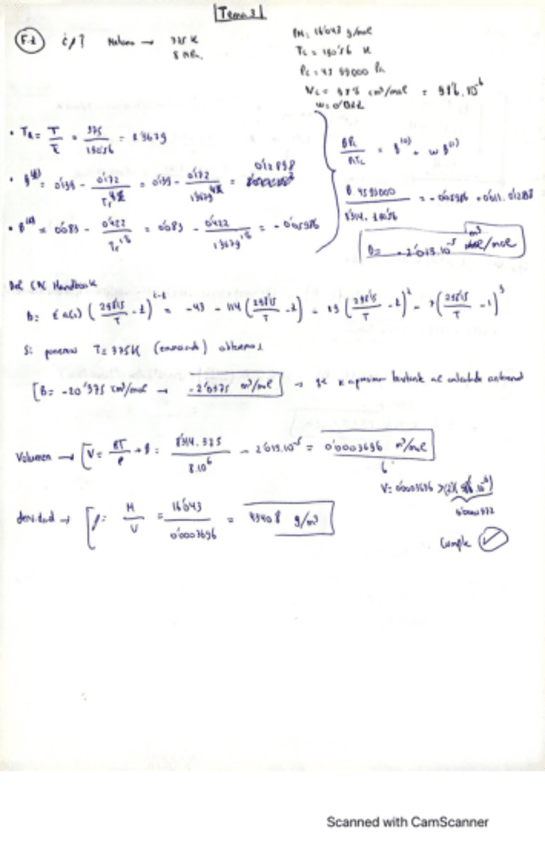 Tema 3
F-1 ¿ρ? Metano → 375 K
8 MPa
PM: 16'043 g/mol
Tc = 190'56 K
Pc = 45 99000 Pa
Vc = 98'6 cm³/mol = 98'6.10⁻⁶
w = 0'011
• TR = T/Tc = 375/190'56 = 1'9679
• B⁽¹⁾ = 0'139 - 0'172/Tr^4'2 = 0'139 - 0'172/1'9679^4'2 = 0'12898
• B⁽⁰⁾ = 0'083 - 0'422/Tr^1'6 = 0'083 - 0'422/1'9679^1'6 = -0'05986
BPc/RTc = B⁽⁰⁾ + w B⁽¹⁾
B 4599000/8'314.190'56 = -0'05986 + 0'011.0'12898
B = -2'013.10⁻⁵ m³/mol
Del CRC Handbook
B = Σ a(i) (298'15/T - 1)^i-1 = -43 - 114 (298'15/T - 1) - 19 (298'15/T - 1)² - 7 (298'15/T - 1)³
Si ponemos T = 375K (enunciado) obtenemos
[B = -20'375 cm³/mol → -2'0375 m³/mol] → Se aproxima bastante al calculado
Volumen → [V = RT/P + B = 8'314.375/8.10⁶ - 2'013.10⁻⁵ = 0'0003696 m³/mol
V = 0'0003696 >
0'0001972
Cumple ✓
densidad → [ρ = M/V = 16'043/0'0003696 = 43408 g/m³]
Scanned with CamScanner